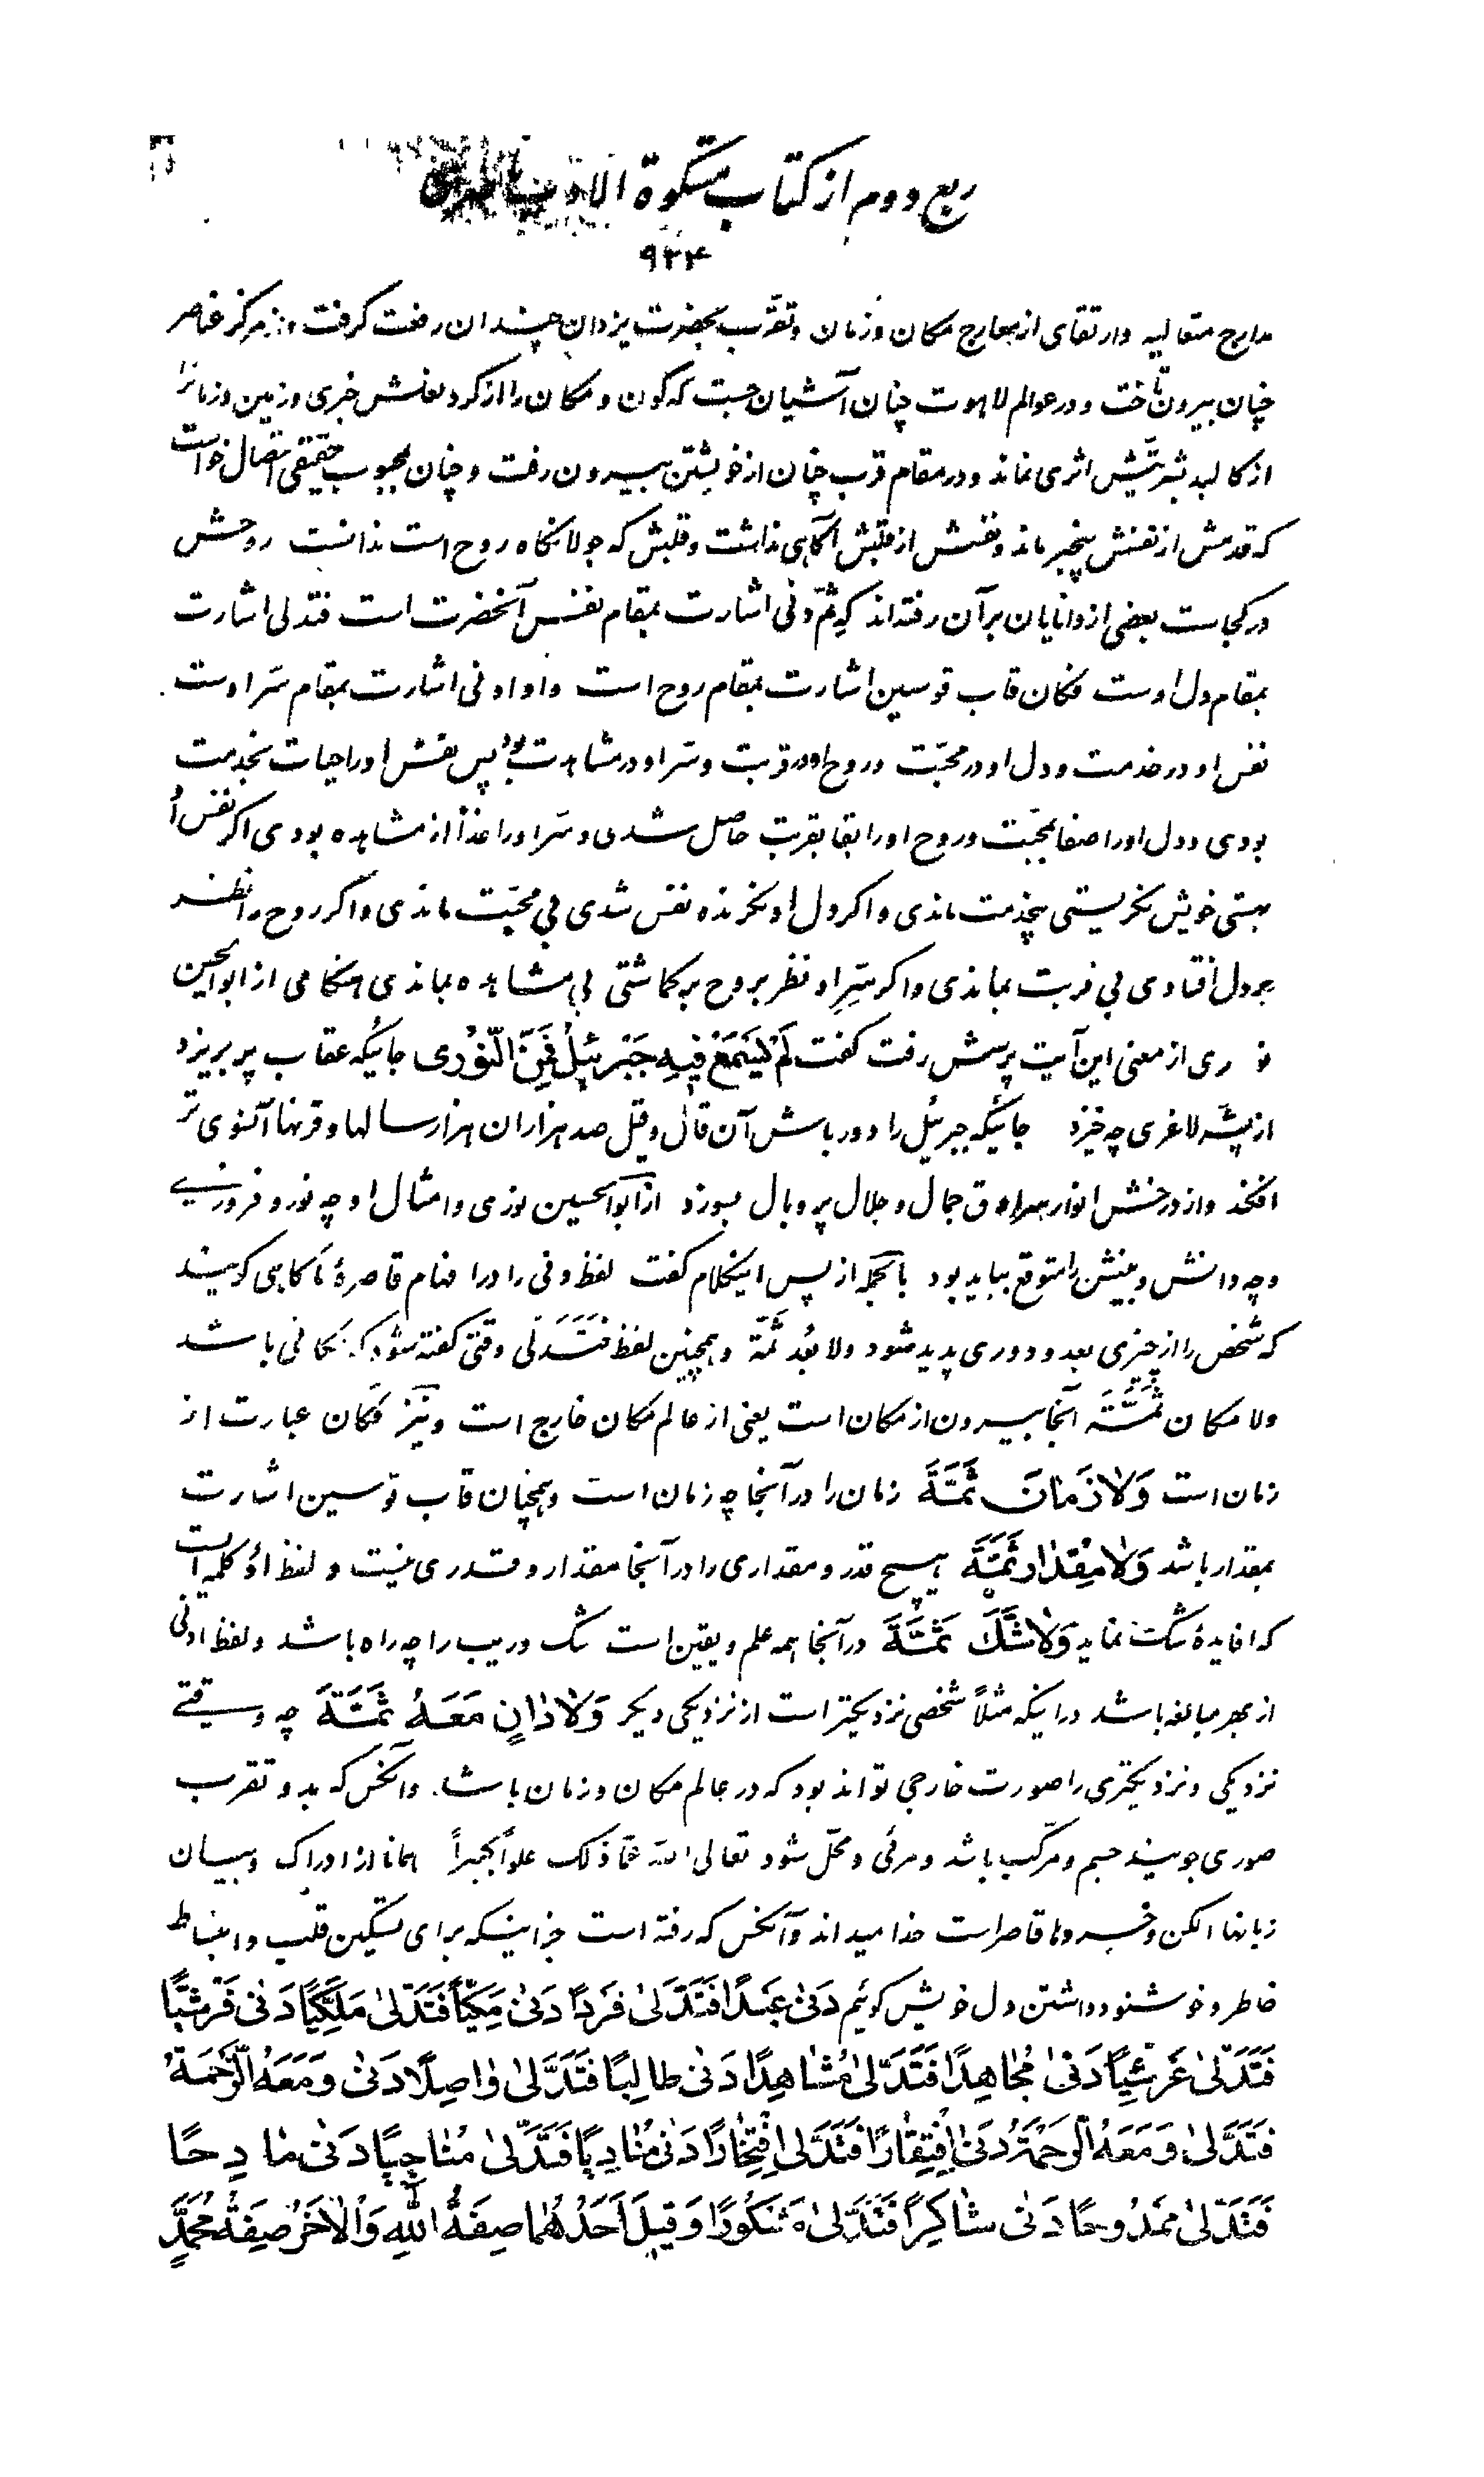 ربع دوم از کتاب مشکوة الادب ناصری
۹۳۴
مدارج متعالیه وارتقای از معارج مکان و زمان وتقرّب بحضرت یزدان چندان رفعت گرفت و از مرکز عناصر
چنان بیرون تاخت و در عوالم لاهوت چنان آشیان جست که کون و مکان را از گرد نعلش خبری و زمین و زمانرا
از کالبد بشریّتش اثری نماند و در مقام قرب چنان از خویشتن بیرون رفت و چنان بمحبوب حقیقی اتصال خواست
که قدمش از نفسش بیخبر ماند و نفسش از قلبش آگاهی نداشت و قلبش که جولانگاه روح است ندانست روحش
در کجاست بعضی از دانایان بر آن رفته‌اند که ثمّ دنی اشارت بمقام نفس آنحضرت است فتدلی اشارت
بمقام دل اوست فکان قاب قوسین اشارت بمقام روح است و او ادنی اشارت بمقام سرّ اوست
نفس او در خدمت و دل او در محبّت و روح او در قربت و سرّ او در مشاهدت بود پس نفس او را حیات بخدمت
بودی و دل او را صفا بمحبّت و روح او را بقا بقربت حاصل شدی و سرّ او را غذا از مشاهده بودی اگر نفس او
بهستی خویش نگریستی بیخدمت ماندی و اگر دل او نگرنده نفس شدی بی محبّت ماندی و اگر روح را نظر
بر دل افتادی بی قربت بماندی و اگر سرّ او نظر بروح برگماشتی بی مشاهده بماندی هنگامی از ابوالحسین
نوری از معنی این آیت پرسش رفت گفت لَمْ يَسَعْ فِيهِ جَبْرَئِيلُ فَمَنِ النُّورِى جائیکه عقاب پر بریزد
از پشه لاغری چه خیزد جائیکه جبرئیل را دور باش آن قال وقیل صد هزاران هزار سالها و قرنها آنسوی تر
افکند و از درخشش انوار سرادق جمال و جلال پر و بال بسوزد از ابوالحسین نوری و امثال او چه نور و فروزنی
و چه دانش و بینش را متوقع بباید بود بالجمله از پس اینکلام گفت لفظ دنی را در افهام قاصرهٔ ما گاهی گویند
که شخص را از چیزی بعد و دوری پدید شود ولا بُعد ثَمَّة و همچنین لفظ فَتَدَلّی وقتی گفته شود که مکانی باشد
ولا مکان ثَمَّتَه آنجا بیرون از مکان است یعنی از عالم مکان خارج است و نیز فَکان عبارت از
زمان است وَلاٰزَمٰانَ ثَمَّتَةَ زمان را در آنجا چه زمان است و همچنان قاب قوسین اشارت
بمقدار باشد وَلاٰمِقْدٰارَ ثَمَّتَةَ هیچ قدر و مقداری را در آنجا مقدار و قدری نیست و لفظ اَوْ کلمه‌ایست
که افایدهٔ شک نماید وَلاٰشَكَّ ثَمَّتَةَ در آنجا همه علم و یقین است شک و ریب را چه راه باشد و لفظ ادنی
از بهر مبالغه باشد در اینکه مثلاً شخصی نزدیکتر است از نزدیکی دیگر وَلاٰدٰانٍ مَعَهُ ثَمَّتَةَ چه وقتی
نزدیکی و نزدیکتری را صورت خارجی تواند بود که در عالم مکان و زمان باشد. و آنکس که بدو تقرب
صوری جویند جسم و مرکّب باشد و مرئی و محلّ شود تعالی الله عمّا ذلک علواً کبیراً همانا از ادراک و بیان
زبانها الکن و خبرها قاصر است خدا میداند و آنکس که رفته است جز اینکه برای تسکین قلب و انبساط
خاطر و خوشنود داشتن دل خویش گوئیم دَنىٰ عَبْدًا فَتَدَلّىٰ فَرْدًا دَنىٰ مَكِّيًّا فَتَدَلّىٰ مَلَكِيًّا دَنىٰ قُرَشِيًّا
فَتَدَلّىٰ عَرْشِيًّا دَنىٰ مُجٰاهِدًا فَتَدَلّىٰ مُشٰاهِدًا دَنىٰ طٰالِبًا فَتَدَلّىٰ وٰاصِلًا دَنىٰ وَمَعَهُ الرَّحْمَةُ
فَتَدَلّىٰ وَمَعَهُ الرَّحْمَةُ دَنىٰ اِفْتِقٰارًا فَتَدَلّىٰ اِفْتِخٰارًا دَنىٰ مُنٰادِيًا فَتَدَلّىٰ مُنٰاجِيًا دَنىٰ مٰادِحًا
فَتَدَلّىٰ مَمْدُوحًا دَنىٰ شٰاكِرًا فَتَدَلّىٰ مَشْكُورًا وَقِيلَ اَحَدُهُمٰا صِفَةُ اللهِ وَالْاٰخَرُ صِفَةُ مُحَمَّدٍ